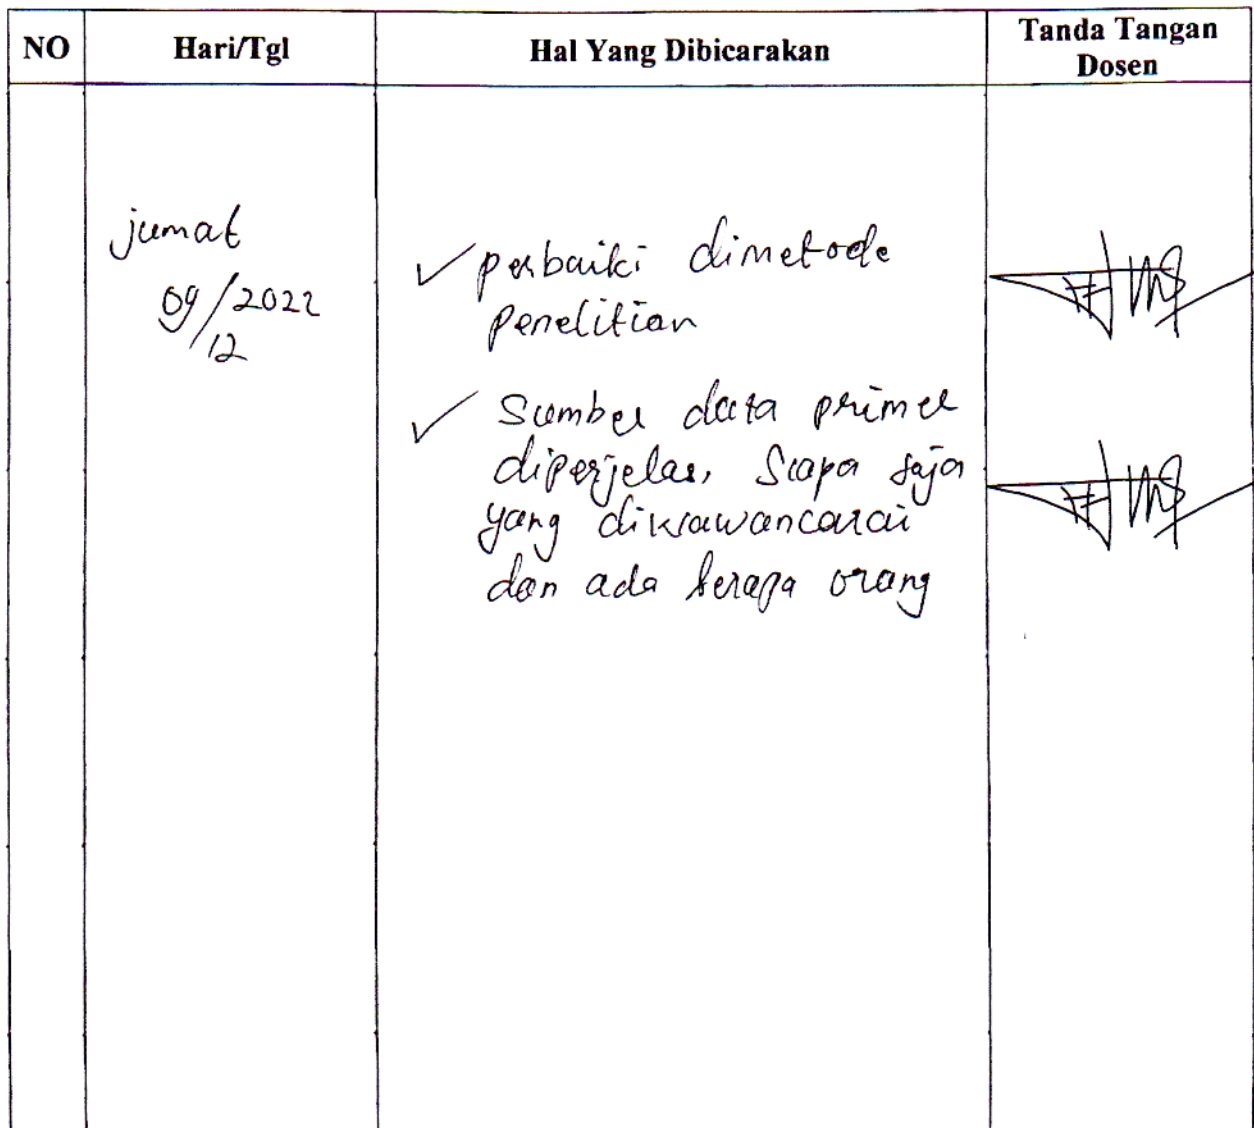 NO Hari/Tgl Hal Yang Dibicarakan Tanda Tangan
Dosen
jumat
09/2022
12
✓ perbaiki dimetode
penelitian
✓ Sumber data primer
diperjelas, Siapa saja
yang diwawancarai
dan ada berapa orang